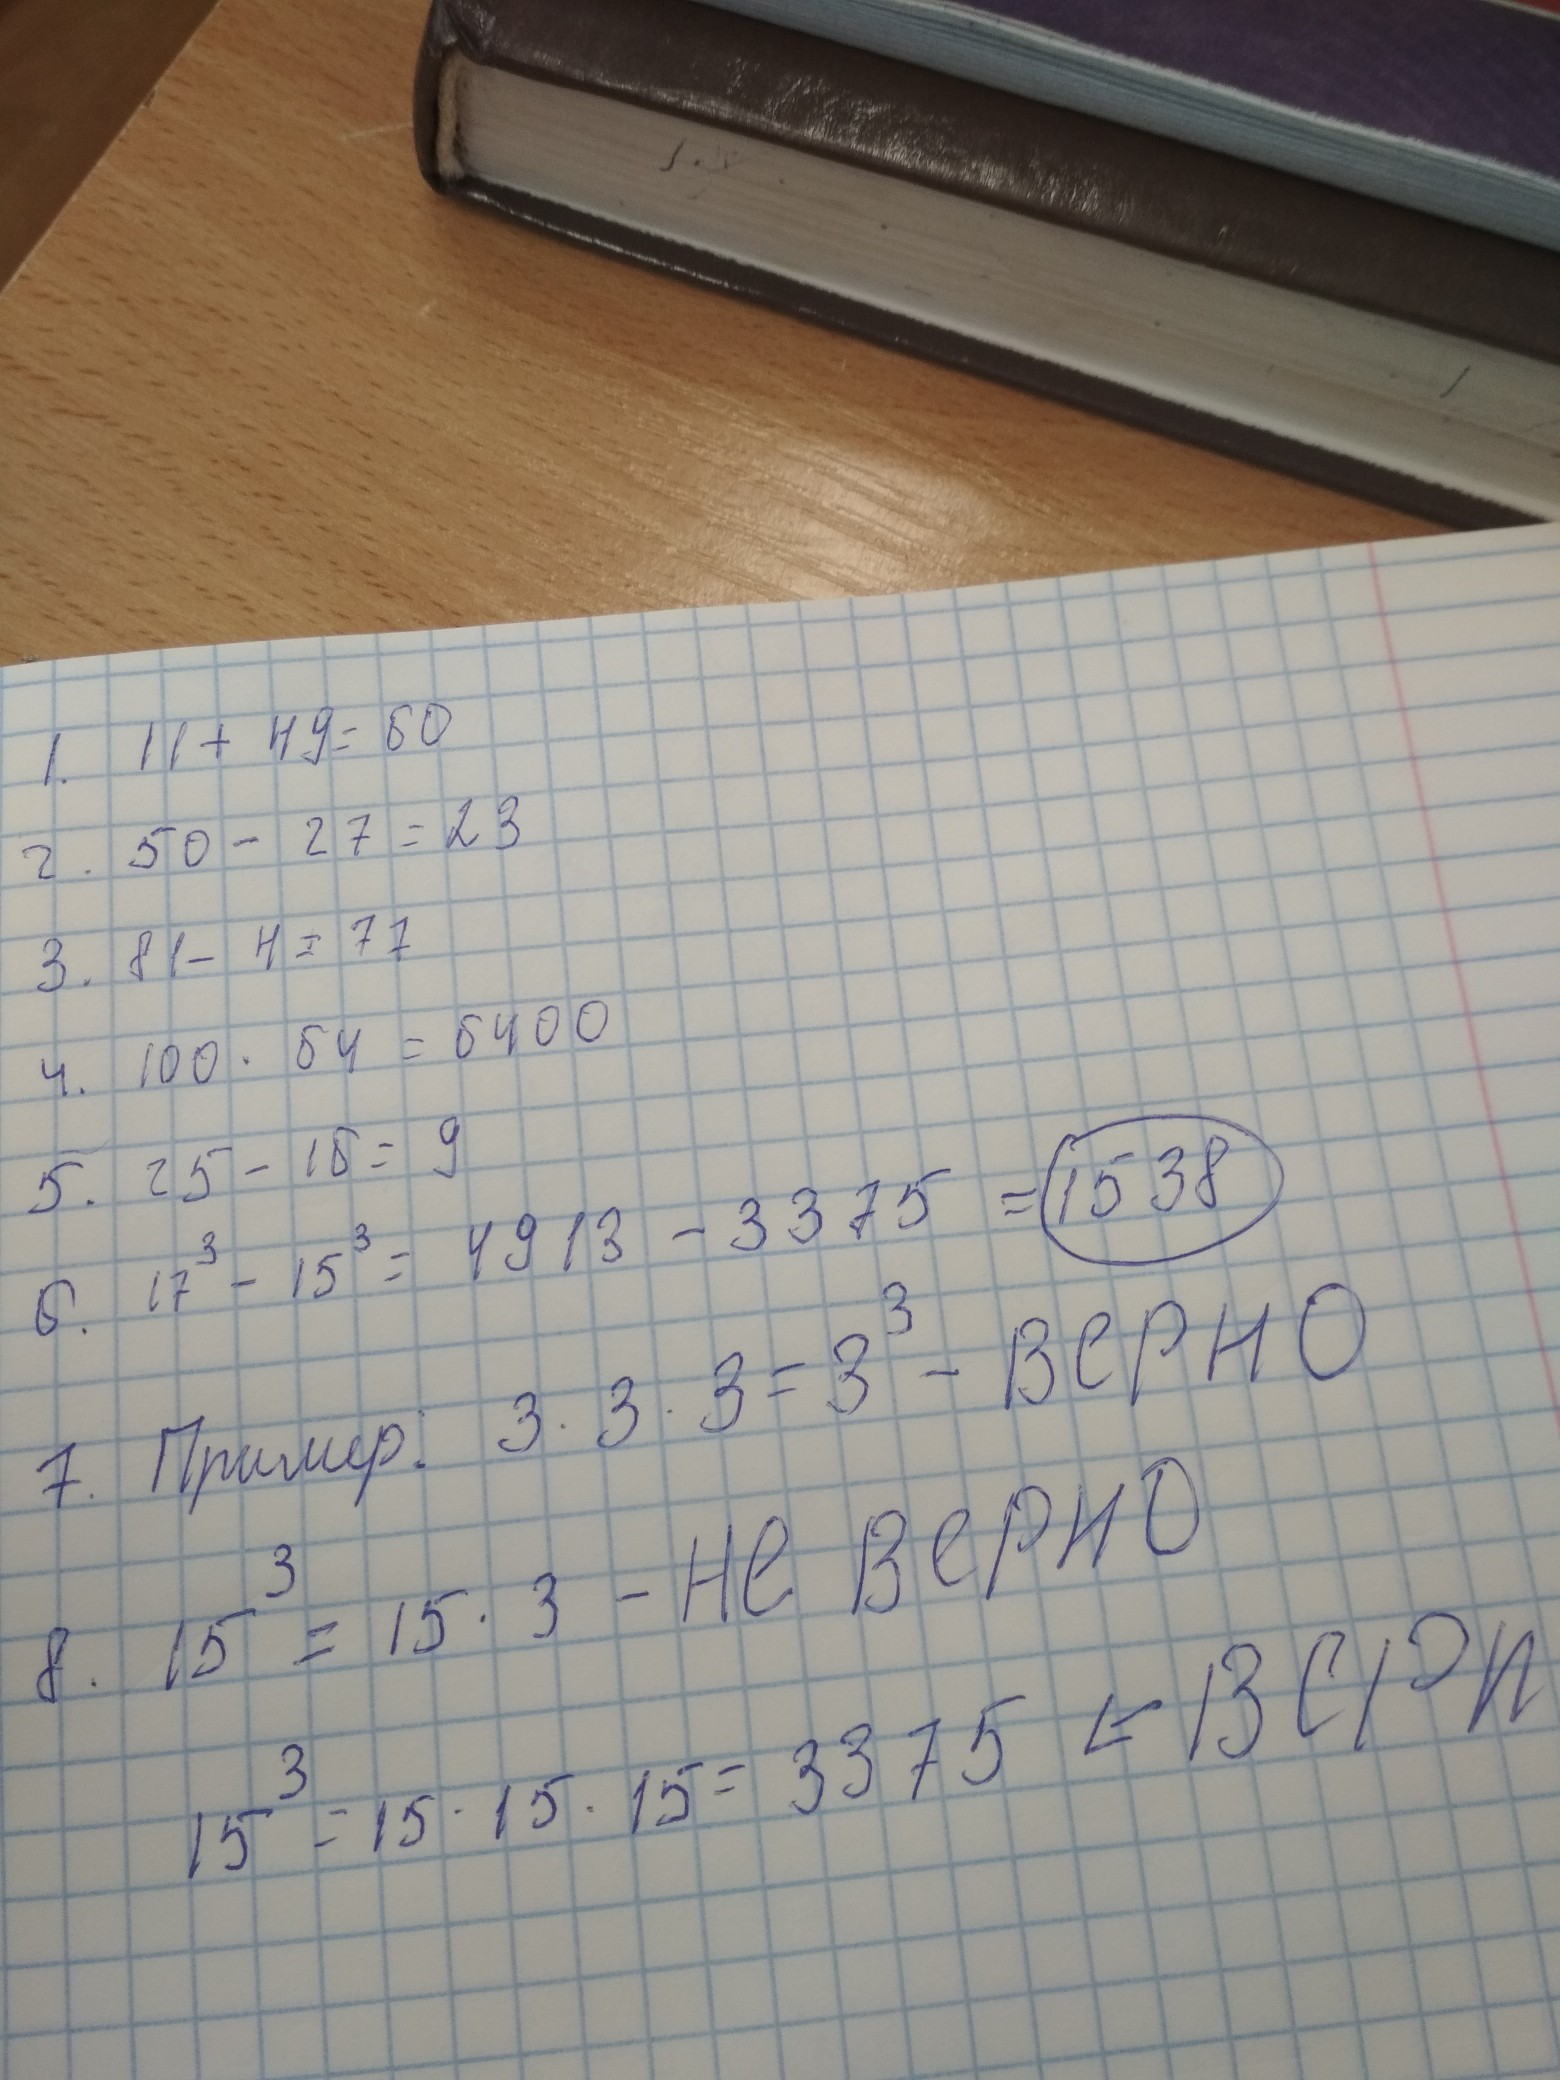 1. 11 + 49 = 60
2. 50 - 27 = 23
3. 81 - 4 = 77
4. 100 · 64 = 6400
5. 25 - 16 = 9
6. 17³ - 15³ = 4913 - 3375 = 1538
7. Пример: 3 · 3 · 3 = 3³ - верно
8. 15³ = 15 · 3 - не верно
15³ = 15 · 15 · 15 = 3375 ←